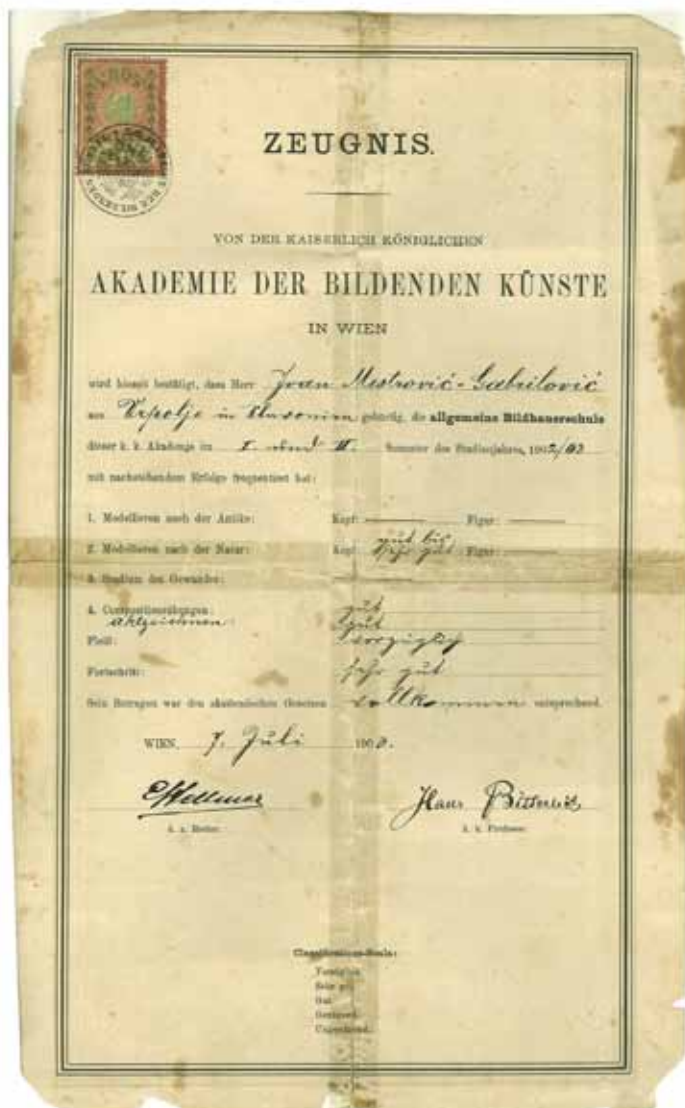 ZEUGNIS.
VON DER KAISERLICH KÖNIGLICHEN
AKADEMIE DER BILDENDEN KÜNSTE
IN WIEN
wird hiemit bestätigt, dass Herr Ivan Mestrović-Gabrilović
aus Vrpolje in Slavonien gebürtig, die allgemeine Bildhauerschule
dieser k. k. Akademie im I. und II. Semester des Studienjahres, 1902/03
mit nachstehendem Erfolge frequentiert hat:
1. Modellieren nach der Antike: Kopf: Figur:
2. Modellieren nach der Natur: Kopf: gut bis sehr gut Figur:
3. Studium des Gewandes:
4. Compositionsübungen: gut
gut
Fleiß: vorzüglich
Fortschritt: sehr gut
Sein Betragen war den akademischen Gesetzen vollkommen entsprechend.
WIEN, 7. Juli 1903.
Hellmer Hans Bitterlich
k. k. Rector. k. k. Professor.
Classifications-Scala:
Vorzüglich
Sehr gut
Gut